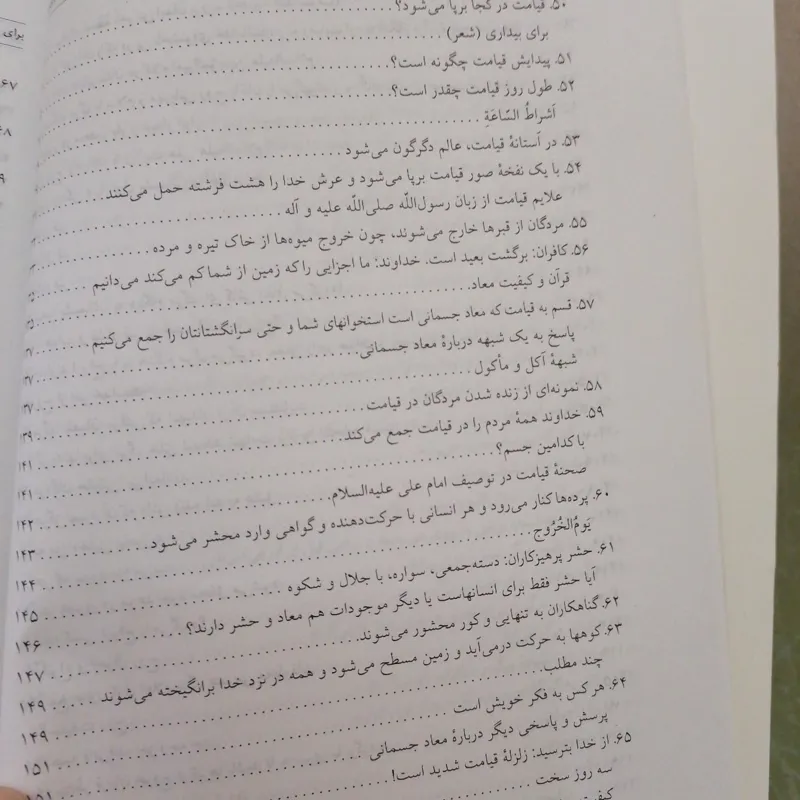 ۵۰. قیامت در کجا برپا می‌شود؟
برای بیداری (شعر)
۵۱. پیدایش قیامت چگونه است؟
۵۲. طول روز قیامت چقدر است؟
أشراطُ السّاعَةِ
۵۳. در آستانهٔ قیامت، عالم دگرگون می‌شود
۵۴. با یک نفخهٔ صور قیامت برپا می‌شود و عرش خدا را هشت فرشته حمل می‌کنند
علایم قیامت از زبان رسول‌اللّه صلی‌اللّه علیه و آله
۵۵. مردگان از قبرها خارج می‌شوند، چون خروج میوه‌ها از خاک تیره و مرده
۵۶. کافران: برگشت بعید است. خداوند: ما اجزایی را که زمین از شما کم می‌کند می‌دانیم
قرآن و کیفیت معاد
۵۷. قسم به قیامت که معاد جسمانی است استخوانهای شما و حتی سرانگشتانتان را جمع می‌کنیم
پاسخ به یک شبهه دربارهٔ معاد جسمانی
شبههٔ آکل و مأکول
۵۸. نمونه‌ای از زنده شدن مردگان در قیامت
۵۹. خداوند همهٔ مردم را در قیامت جمع می‌کند ۱۴۱
با کدامین جسم؟ ۱۴۱
صحنهٔ قیامت در توصیف امام علی علیه‌السلام ۱۴۲
۶۰. پرده‌ها کنار می‌رود و هر انسانی با حرکت‌دهنده و گواهی وارد محشر می‌شود ۱۴۳
یَومُ‌الخُرُوج ۱۴۴
۶۱. حشر پرهیزکاران: دسته‌جمعی، سواره، با جلال و شکوه ۱۴۵
آیا حشر فقط برای انسانهاست یا دیگر موجودات هم معاد و حشر دارند؟ ۱۴۶
۶۲. گناهکاران به تنهایی و کور محشور می‌شوند ۱۴۷
۶۳. کوهها به حرکت درمی‌آید و زمین مسطح می‌شود و همه در نزد خدا برانگیخته می‌شوند ۱۴۹
چند مطلب ۱۴۹
۶۴. هر کس به فکر خویش است ۱۵۱
پرسش و پاسخی دیگر دربارهٔ معاد جسمانی ۱۵۱
۶۵. از خدا بترسید: زلزلهٔ قیامت شدید است!
سه روز سخت